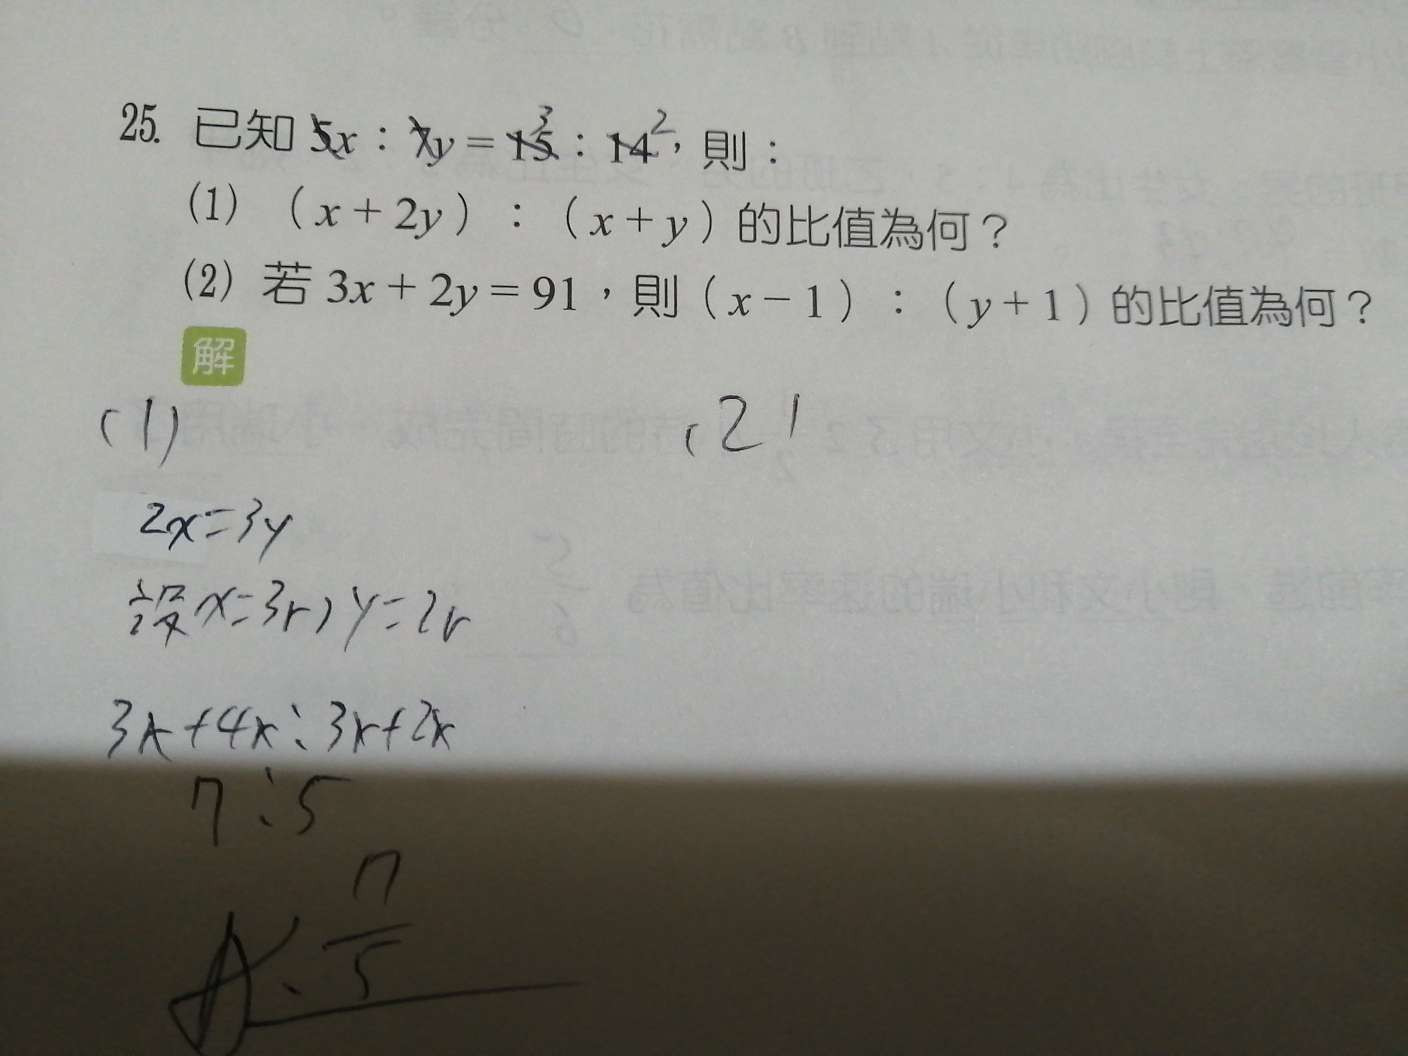 25. 已知 5x：7y＝15：14，則： 3 2
(1) （x＋2y）：（x＋y）的比值為何？
(2) 若 3x＋2y＝91，則（x－1）：（y＋1）的比值為何？
解
(1) (2)
2x=3y
設x=3r, y=2r
3r+4r:3r+2r
7:5
A: 7/5